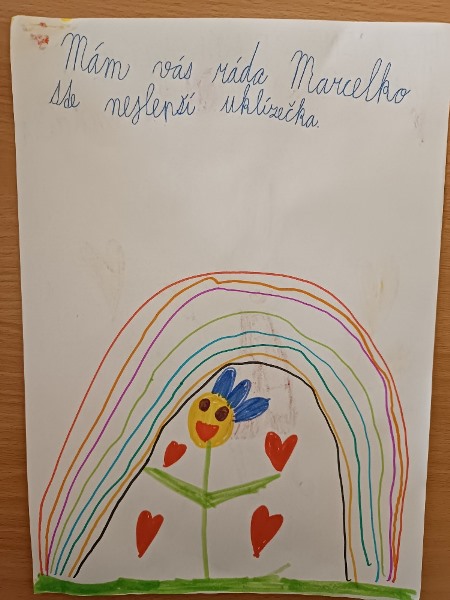 Mám vás ráda Marcelko
Sde nejlepší uklízečka.